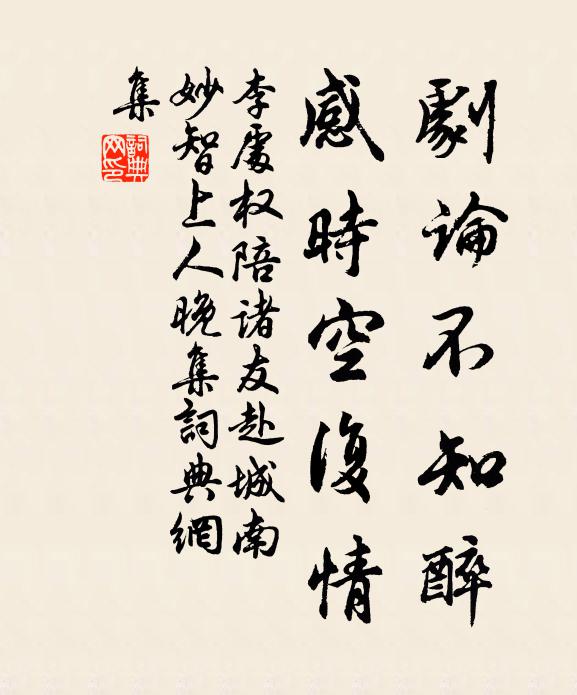 劇論不知醉
感時空復情
李處权陪诸友赴城南
妙智上人晚集詞典網
集
詞典
网印